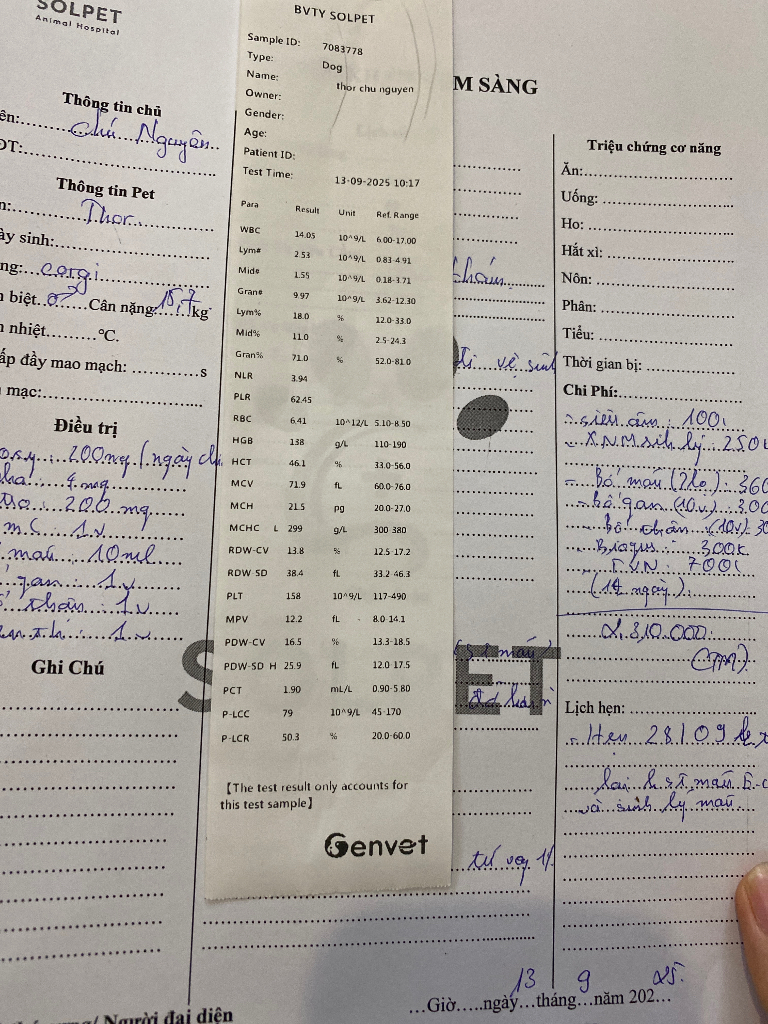 SOLPET
Animal Hospital
Thông tin chủ
Chú Nguyên
Thông tin Pet
Thor
ày sinh:
corgi
biệt ♂ Cân nặng: 15,7 kg
nhiệt.........°C.
ấp đầy mao mạch: ............s
mạc:
Điều trị
oxy : 200mg / ngày
4 mg
200 mg
m.C 1v
máu 10ml
gan 1v
thận 1v
1v
Ghi Chú
BVTY SOLPET
Sample ID: 7083778
Type: Dog
Name: thor chu nguyen
Owner:
Gender:
Age:
Patient ID:
Test Time: 13-09-2025 10:17
Para Result Unit Ref. Range
WBC 14.05 10^9/L 6.00-17.00
Lym# 2.53 10^9/L 0.83-4.91
Mid# 1.55 10^9/L 0.18-3.71
Gran# 9.97 10^9/L 3.62-12.30
Lym% 18.0 % 12.0-33.0
Mid% 11.0 % 2.5-24.3
Gran% 71.0 % 52.0-81.0
NLR 3.94
PLR 62.45
RBC 6.41 10^12/L 5.10-8.50
HGB 138 g/L 110-190
HCT 46.1 % 33.0-56.0
MCV 71.9 fL 60.0-76.0
MCH 21.5 pg 20.0-27.0
MCHC L 299 g/L 300-380
RDW-CV 13.8 % 12.5-17.2
RDW-SD 38.4 fL 33.2-46.3
PLT 158 10^9/L 117-490
MPV 12.2 fL 8.0-14.1
PDW-CV 16.5 % 13.3-18.5
PDW-SD H 25.9 fL 12.0-17.5
PCT 1.90 mL/L 0.90-5.80
P-LCC 79 10^9/L 45-170
P-LCR 50.3 % 20.0-60.0
【The test result only accounts for
this test sample】
Genvet
M SÀNG
đi vệ sinh
Triệu chứng cơ năng
Ăn:
Uống:
Ho:
Hắt xì:
Nôn:
Phân:
Tiểu:
Thời gian bị:
Chi Phí:
- siêu âm : 100
- XNM sinh lý : 250k
- Bổ máu (2lọ) : 360
- bổ gan (10v) : 300
- bổ thận (10v) 30
- 300k
700k
(14 ngày)
2.310.000
(TM)
Lịch hẹn:
- Hẹn 28/09
lại máu
và sinh lý máu
13 9 25
...Giờ.....ngày...tháng...năm 202...
/ Người đại diện